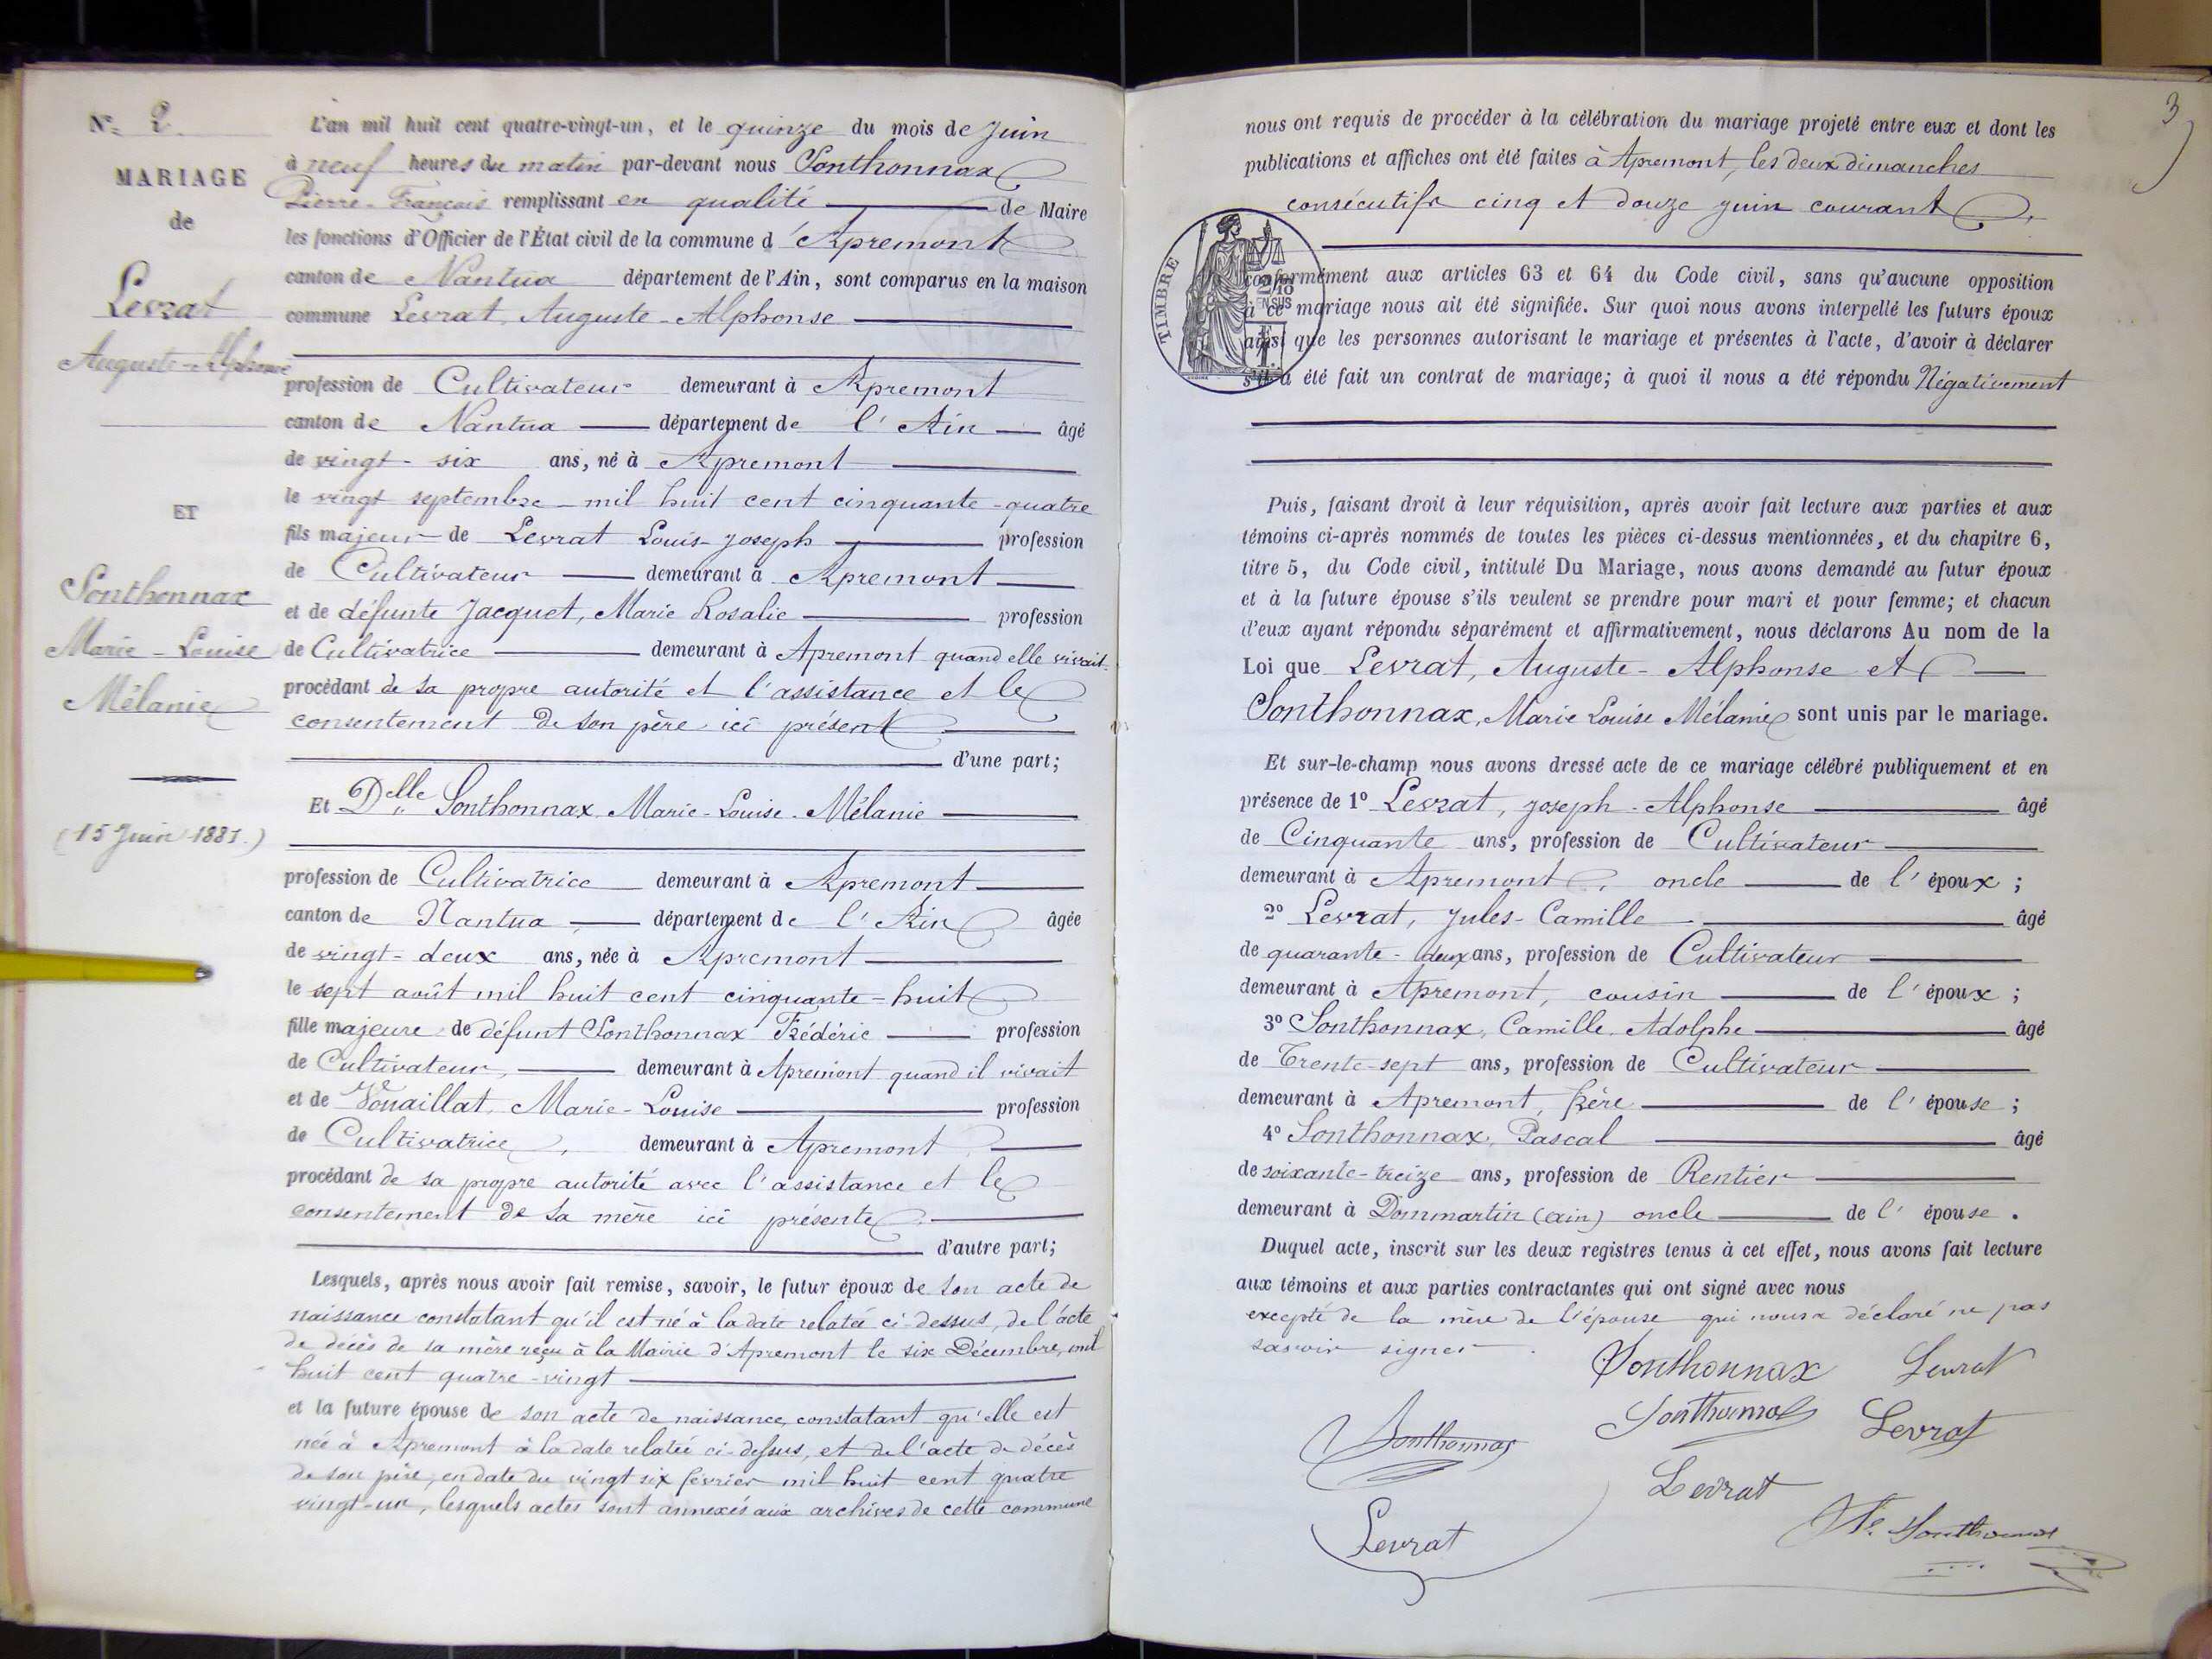 N° 2
MARIAGE
de
Levrat
Auguste-Alphonse
ET
Sonthonnax
Marie-Louise
Mélanie
(15 Juin 1881.)
L'an mil huit cent quatre-vingt-un, et le quinze du mois de Juin
à neuf heures du matin par-devant nous Sonthonnax
Pierre-François remplissant en qualité de Maire
les fonctions d'Officier de l'État civil de la commune d'Apremont
canton de Nantua département de l'Ain, sont comparus en la maison
commune Levrat, Auguste-Alphonse
profession de Cultivateur demeurant à Apremont
canton de Nantua département de l'Ain âgé
de vingt-six ans, né à Apremont
le vingt septembre mil huit cent cinquante-quatre
fils majeur de Levrat Louis-Joseph profession
de Cultivateur demeurant à Apremont
et de défunte Jacquet, Marie Rosalie profession
de Cultivatrice demeurant à Apremont quand elle vivait
procédant de sa propre autorité et l'assistance et le
consentement de son père ici présent
d'une part;
Et Delle Sonthonnax Marie-Louise-Mélanie
profession de Cultivatrice demeurant à Apremont
canton de Nantua département de l'Ain âgée
de vingt-deux ans, née à Apremont
le sept août mil huit cent cinquante-huit
fille majeure de défunt Sonthonnax Frédéric profession
de Cultivateur, demeurant à Apremont quand il vivait
et de Vouaillat, Marie-Louise profession
de Cultivatrice, demeurant à Apremont
procédant de sa propre autorité avec l'assistance et le
consentement de sa mère ici présente
d'autre part;
Lesquels, après nous avoir fait remise, savoir, le futur époux de son acte de
naissance constatant qu'il est né à la date relatée ci-dessus, de l'acte
de décès de sa mère reçu à la Mairie d'Apremont le six Décembre, mil
huit cent quatre-vingt
et la future épouse de son acte de naissance, constatant qu'elle est
née à Apremont à la date relatée ci-dessus, et de l'acte de décès
de son père, en date du vingt six février mil huit cent quatre
vingt-un, lesquels actes sont annexés aux archives de cette commune
3
nous ont requis de procéder à la célébration du mariage projeté entre eux et dont les
publications et affiches ont été faites à Apremont, les deux dimanches
consécutifs cinq et douze juin courant
TIMBRE
2/10
EN SUS
conformément aux articles 63 et 64 du Code civil, sans qu'aucune opposition
à ce mariage nous ait été signifiée. Sur quoi nous avons interpellé les futurs époux
ainsi que les personnes autorisant le mariage et présentes à l'acte, d'avoir à déclarer
s'il a été fait un contrat de mariage; à quoi il nous a été répondu Négativement
Puis, faisant droit à leur réquisition, après avoir fait lecture aux parties et aux
témoins ci-après nommés de toutes les pièces ci-dessus mentionnées, et du chapitre 6,
titre 5, du Code civil, intitulé Du Mariage, nous avons demandé au futur époux
et à la future épouse s'ils veulent se prendre pour mari et pour femme; et chacun
d'eux ayant répondu séparément et affirmativement, nous déclarons Au nom de la
Loi que Levrat, Auguste-Alphonse et
Sonthonnax, Marie Louise Mélanie sont unis par le mariage.
Et sur-le-champ nous avons dressé acte de ce mariage célébré publiquement et en
présence de 1° Levrat, Joseph-Alphonse âgé
de Cinquante ans, profession de Cultivateur
demeurant à Apremont, oncle de l'époux;
2° Levrat, Jules-Camille âgé
de quarante-deux ans, profession de Cultivateur
demeurant à Apremont, cousin de l'époux;
3° Sonthonnax, Camille, Adolphe âgé
de Trente-sept ans, profession de Cultivateur
demeurant à Apremont, frère de l'épouse;
4° Sonthonnax, Pascal âgé
de soixante-treize ans, profession de Rentier
demeurant à Dommartin (Ain) oncle de l'épouse.
Duquel acte, inscrit sur les deux registres tenus à cet effet, nous avons fait lecture
aux témoins et aux parties contractantes qui ont signé avec nous
excepté de la mère de l'épouse qui nous a déclaré ne pas
savoir signer.
Sonthonnax Levrat
Sonthonnax Levrat
Sonthonnax
Levrat
Levrat
Sonthonnax